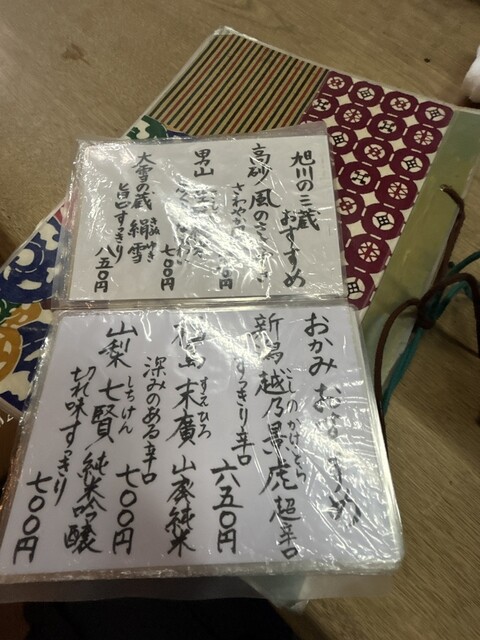 旭川の三蔵
おすすめ
高砂 風のささやき
さわやか
男山
七〇〇円
大雪の蔵 絹雪
きぬゆき
旨口すっきり
八五〇円
おかみ おすすめ
新潟 越乃景虎 超辛口
こしのかげとら
すっきり辛口
六五〇円
福島 末廣 山廃純米
すえひろ
深みのある辛口
七〇〇円
山梨 七賢 純米吟醸
しちけん
切れ味すっきり
七〇〇円